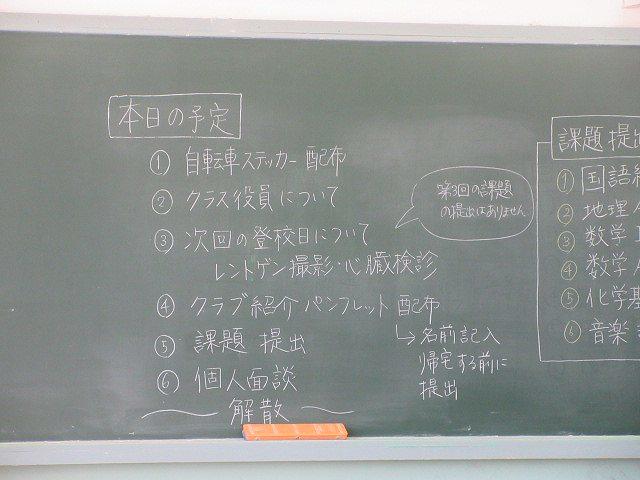 本日の予定
① 自転車ステッカー配布
② クラス役員について
③ 次回の登校日について
レントゲン撮影・心臓検診
④ クラブ紹介パンフレット配布
↳名前記入
帰宅する前に
提出
⑤ 課題 提出
⑥ 個人面談
〜 解散 〜
第3回の課題
の提出はありません
課題提出
① 国語
② 地理
③ 数学
④ 数学
⑤ 化学基
⑥ 音楽